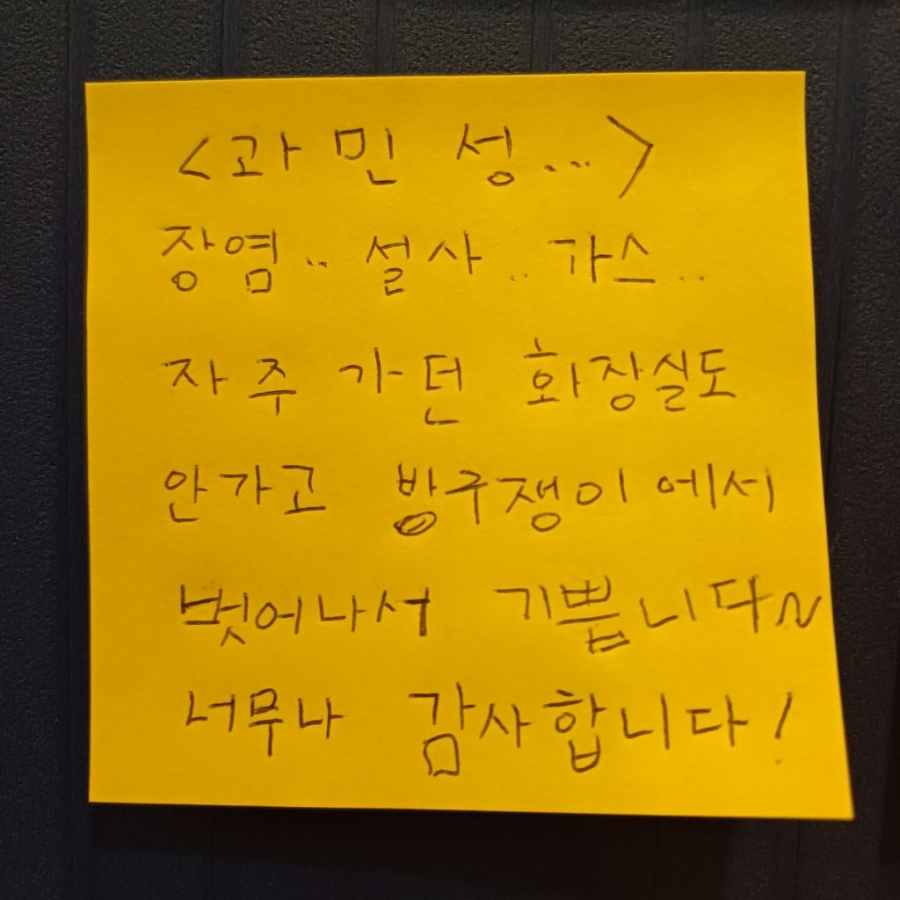 <과민성...>
장염.. 설사.. 가스..
자주 가던 화장실도
안가고 방구쟁이에서
벗어나서 기쁩니다~
너무나 감사합니다!